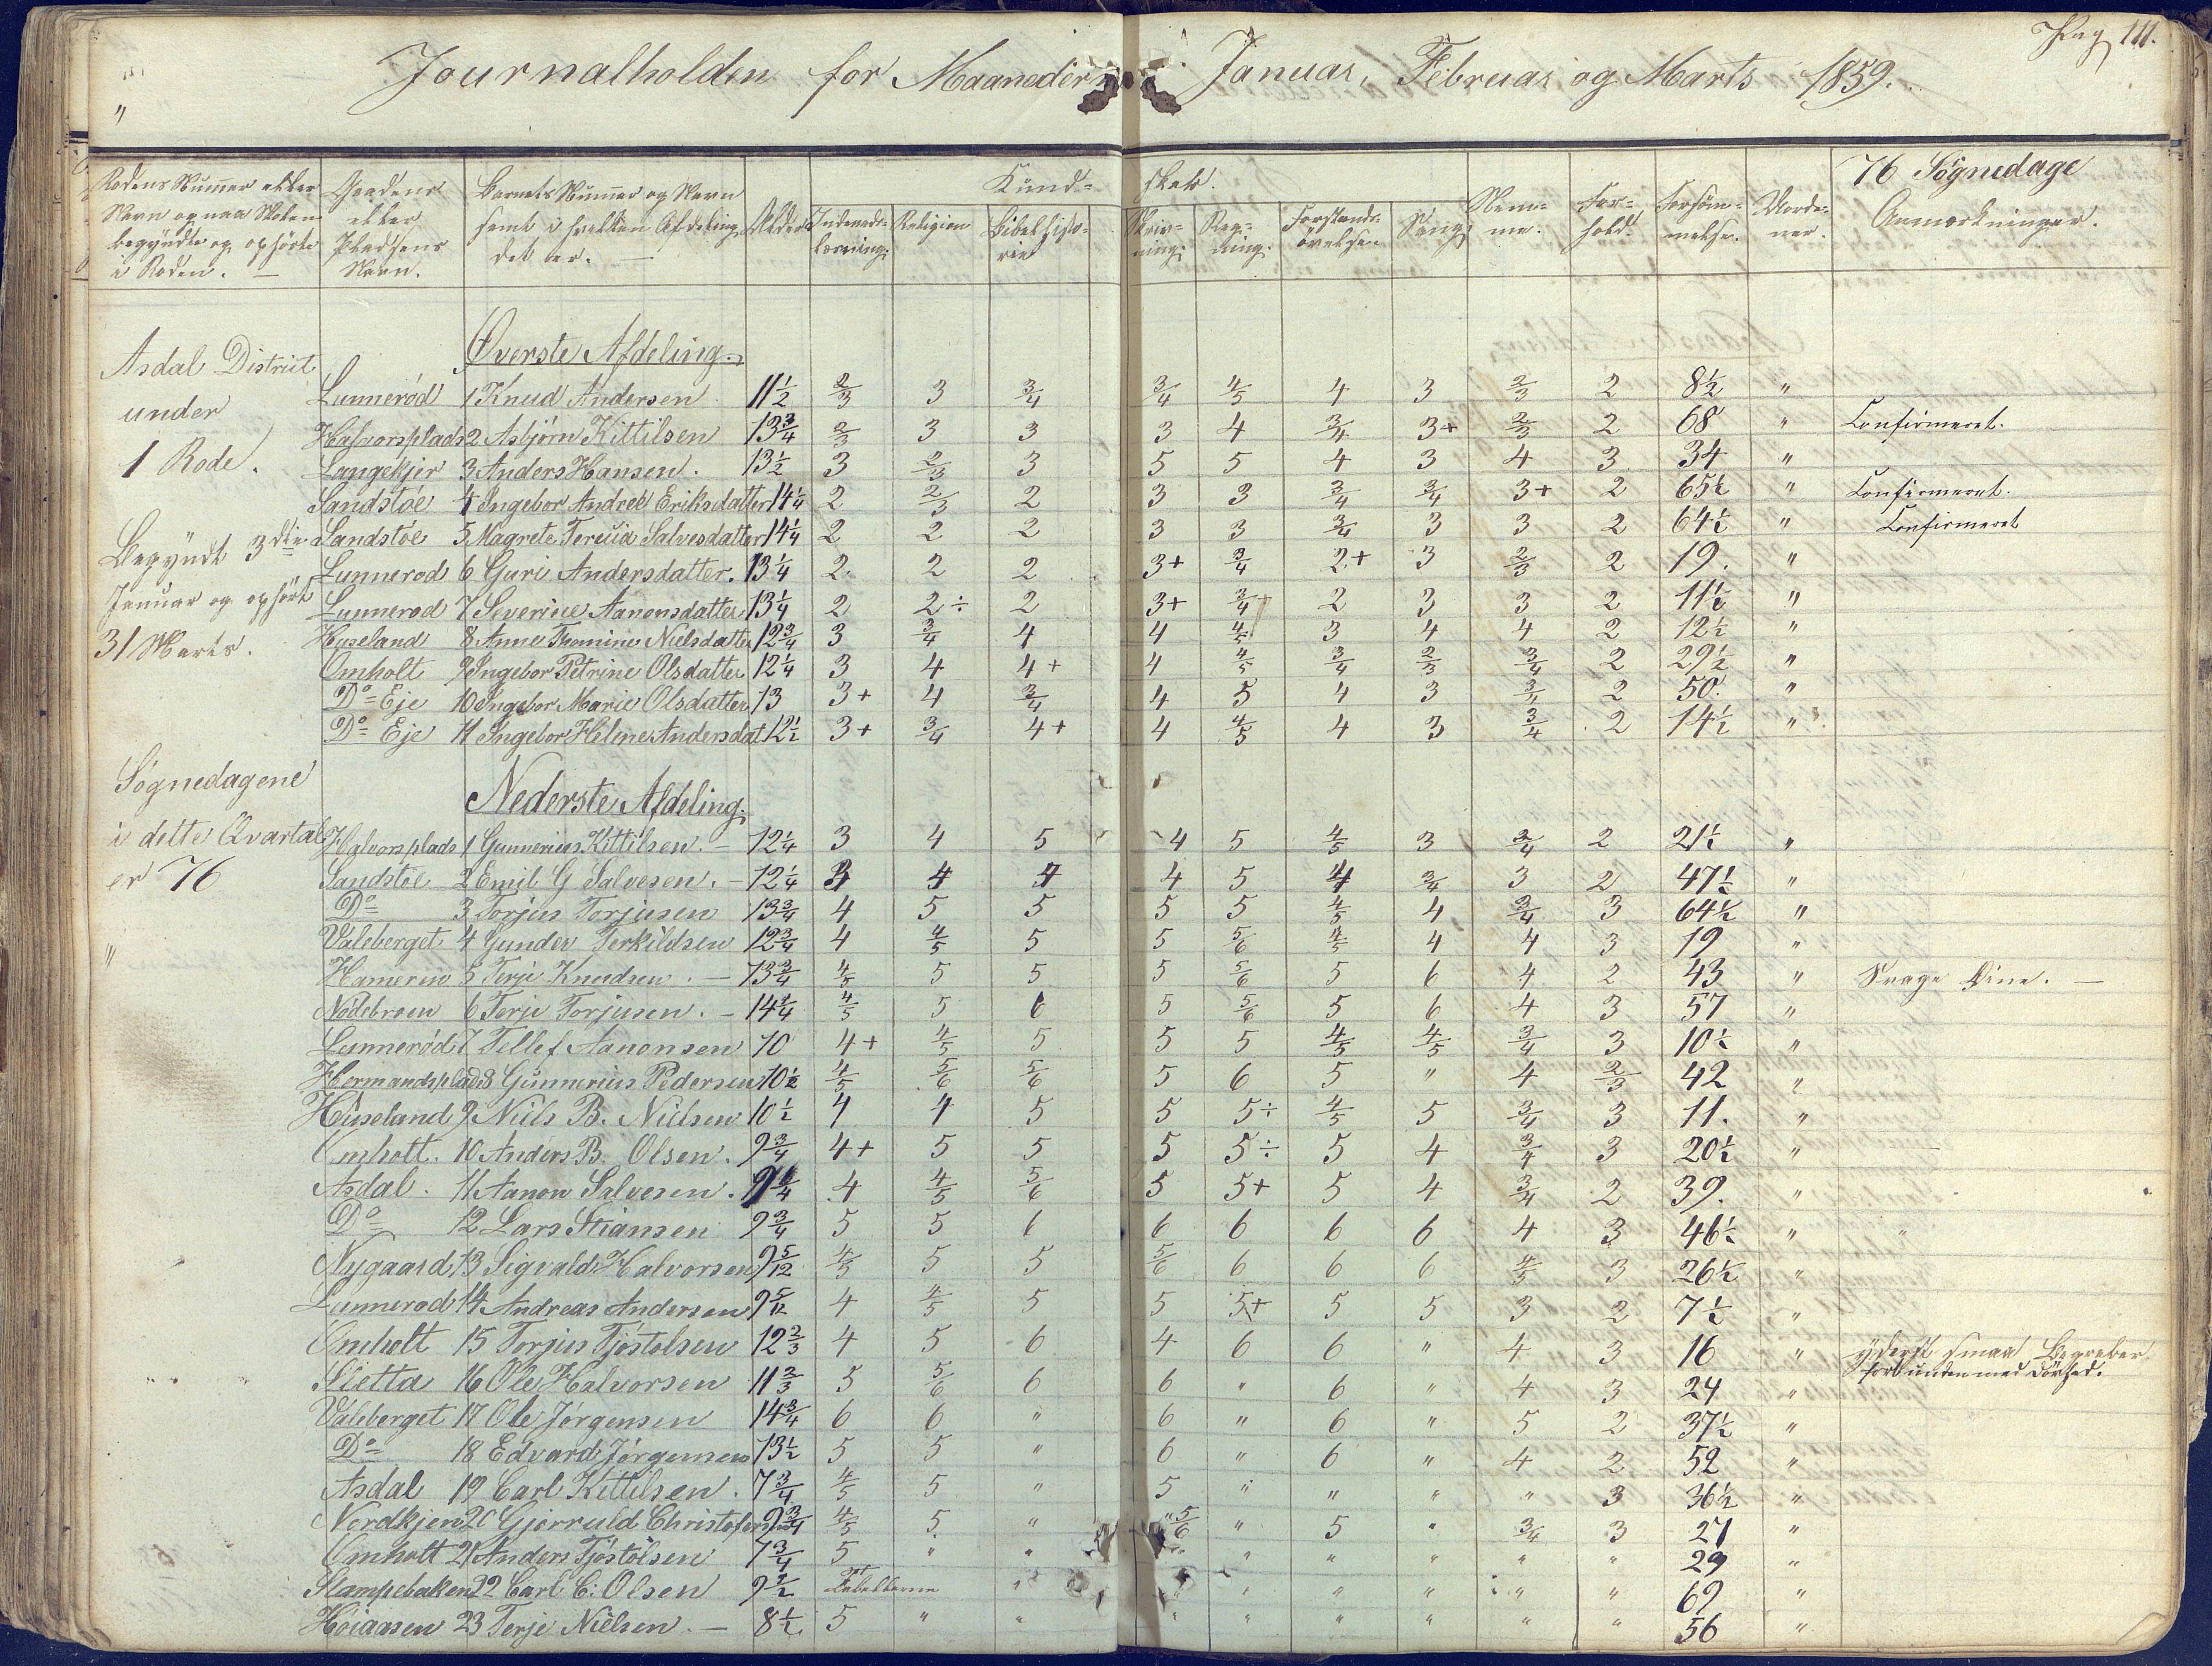 Pag 111.
Journalholden for Maanederne Januar, Februar og Marts 1859.
Rodens Nummer eller Navn og naar Skolen begyndte og ophørte i Roden. —
Gaardens eller Pladsens Navn.
Barnets Nummer og Navn samt i hvilken Afdeling det er. —
Alder
Kund= skab.
Indenads= læsning;
Religion
Bibelhisto= rie
Skriv= ning;
Reg= ning;
Forstands= øvelser
Sang
Nem= me.
For= hold.
Forsøm= melser.
76 Søgnedage
Anmærkninger.
Asdal District
under
1 Rode.
Begyndt 3die
Januar og ophørt
31 Marts.
Søgnedagene
i dette Qvartal
er 76
Øverste Afdeling.
Lunnerød 1 Knud Andersen 11½ 2/3 3 3/4 3/4 4/5 4 3 2/3 2 8½ "
Halvorsplads 2 Asbjørn Kittilsen 13¾ 2/3 3 3 3 4 3/4 3+ 2/3 2 68 " Confirmeret.
Langekjer 3 Anders Hansen. 13½ 3 2/3 3 5 5 4 3 4 3 34 "
Sandstøe 4 Ingebor Andree Eriksdatter 14¼ 2 2/3 2 3 3 3/4 3/4 3+ 2 65½ " Confirmeret.
Sandstøe 5 Magrete Salvesdatter 14¼ 2 2 2 3 3 3/4 3 3 2 64½ " Confirmeret
Lunnerod 6 Guri Andersdatter. 13¼ 2 2 2 3+ 3/4 2+ 3 2/3 2 19. "
Lunnerod 7 Severine Aanonsdatter 13¼ 2 2÷ 2 3+ 3/4 2 3 3 2 11½ "
Huseland 8 Anne Tomine Nielsdatter 12¾ 3 3/4 4 4 4/5 3 4 4 2 12½ "
Omholt 9 Ingebor Petrine Olsdatter 12¼ 3 4 4+ 4 4/5 3/4 2/3 3/4 2 29½ "
Do Eje 10 Ingebor Marie Olsdatter 13 3+ 4 3/4 4 5 4 3 3/4 2 50. "
Do Eje 11 Ingebor Heline Andersdat 12½ 3+ 3/4 4+ 4 4/5 4 3 3/4 2 14½ "
Nederste Afdeling.
Halvorsplads 1 Gunnerius Kittilsen. — 12¼ 3 4 5 4 5 4/5 3 3/4 2 21½ "
Sandstøe 2 Emil G Salvesen. — 12¼ 3 4 4 4 5 4 3/4 3 2 47½ "
Do 3 Torjus Torjusen 13¾ 4 5 5 5 5 4/5 4 3/4 3 64½ "
Valeberget 4 Gunder Terkildsen 12¾ 4 4/5 5 5 5/6 4/5 4 4 3 19 "
Hameren 5 Terje Knudsen. — 13¾ 4/5 5 5 5 5/6 5 6 4 2 43 " Svage Øine. —
Nødebroen 6 Terje Torjusen. — 14¼ 4/5 5 6 5 5/6 5 6 4 3 57 "
Lunnerød 7 Tellef Aanonsen 10 4+ 4/5 5 5 5 4/5 4/5 3/4 3 10½ "
Hermandsplads 8 Gunnerius Pedersen 10½ 4/5 5/6 5/6 5 6 5 " 4 2/3 42 "
Huseland 9 Niels B. Nielsen 10½ 4 4 5 5 5÷ 4/5 5 3/4 3 11. "
Omholt. 10 Anders B. Olsen. 9¾ 4+ 5 5 5 5÷ 5 4 3/4 3 20½ "
Asdal. 11 Aanon Salvesen. 4 4/5 5/6 5 5+ 5 4 3/4 2 39. "
Do 12 Lars Stiansen 9¾ 5 5 6 6 6 6 6 4 3 46½ " "
Nygaard 13 Sigvald Halvorsen 9 5/12 4/5 5 5 5/6 6 6 6 4/5 3 26½ "
Lunnerod 14 Andreas Andersen 9 5/12 4 4/5 5 5 5+ 5 5 3 2 7½ "
Omholt 15 Torjus Tjøstolsen 12⅔ 4 5 6 4 6 6 " 4 3 16 " yderst smaa Begreber, forbunden med Dovhed.
Sletta 16 Ole Halvorsen 11⅔ 5 5/6 6 6 " 6 " 4 3 24 "
Valeberget 17 Ole Jørgensen 14¾ 6 6 " 6 " 6 " 5 2 37½ "
Do 18 Edvard Jørgensen 13½ 5 5 " 6 " 6 " 4 2 52 "
Asdal 19 Carl Kittilsen. 7¾ 4/5 5 " 5 " " " " 3 36½ "
Nordkjen 20 Gjerruld Christofersen 9¾ 4/5 5 " 5/6 " 5 " 3/4 3 27 "
Omholt 21 Anders Tjøstolsen 7¾ 5 " " " " " " " " 29 "
Stampebaken 22 Carl C. Olsen 9½ " " " " " " " 69 "
Høiaasen 23 Terje Nielsen. — 8½ 5 " " " " " " " " 56 "